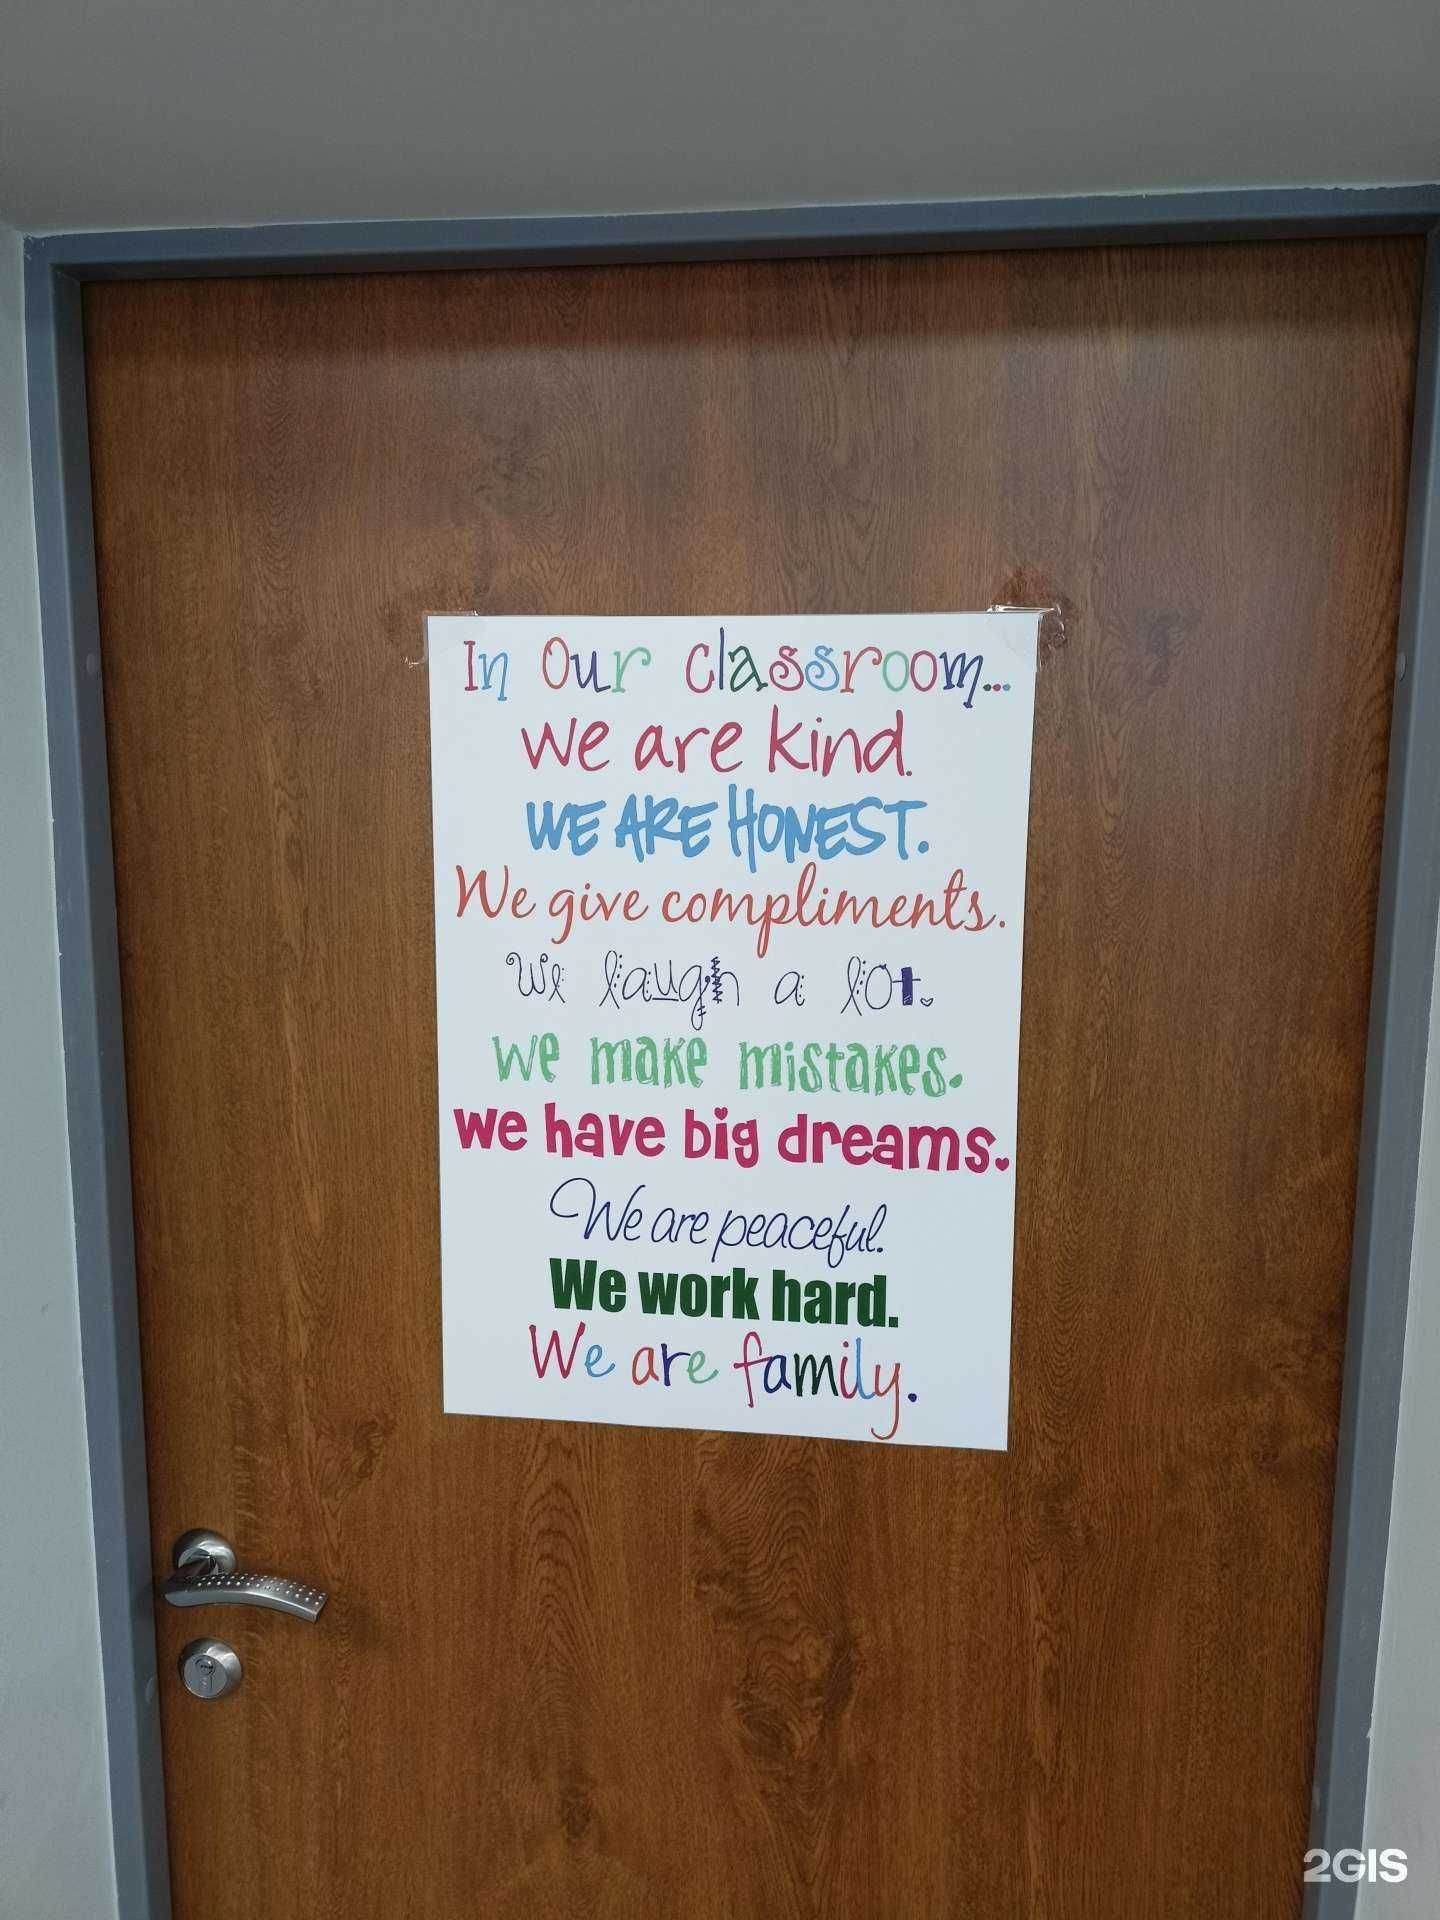 In Our Classroom...
We are kind.
WE ARE HONEST.
We give compliments.
We laugh a lot.
We make mistakes.
we have big dreams.
We are peaceful.
We work hard.
We are family.
2GIS